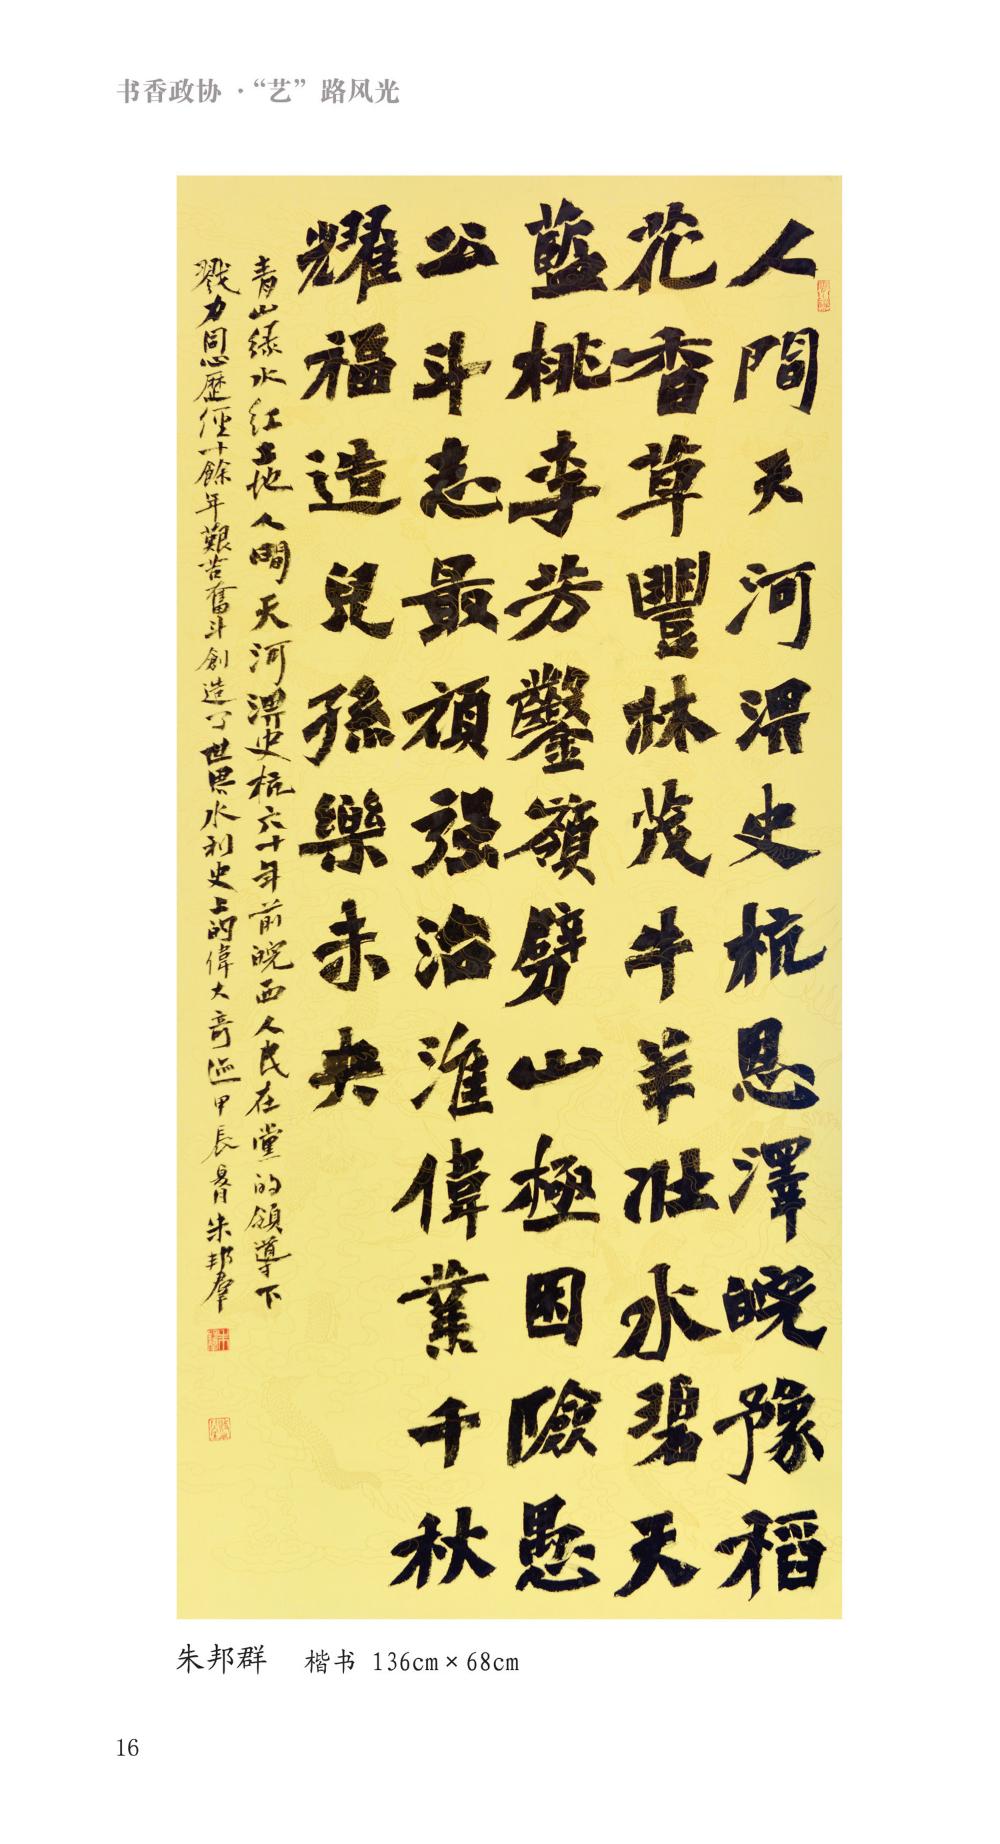 书香政协 ·“艺”路风光
人間天河淠史杭恩澤皖豫稻
花香草豐林茂牛羊壯水碧天
藍桃李芳鑿嶺劈山極困險愚
公斗志最頑强治淮偉業千秋
耀福造兒孫樂未央
青山绿水红土地人間天河淠史杭六十年前皖西人民在黨的領導下
戮力同心歷經十餘年艱苦奮斗創造了世界水利史上的偉大奇迹甲辰春月朱邦群
朱邦群 楷书 136cm×68cm
16